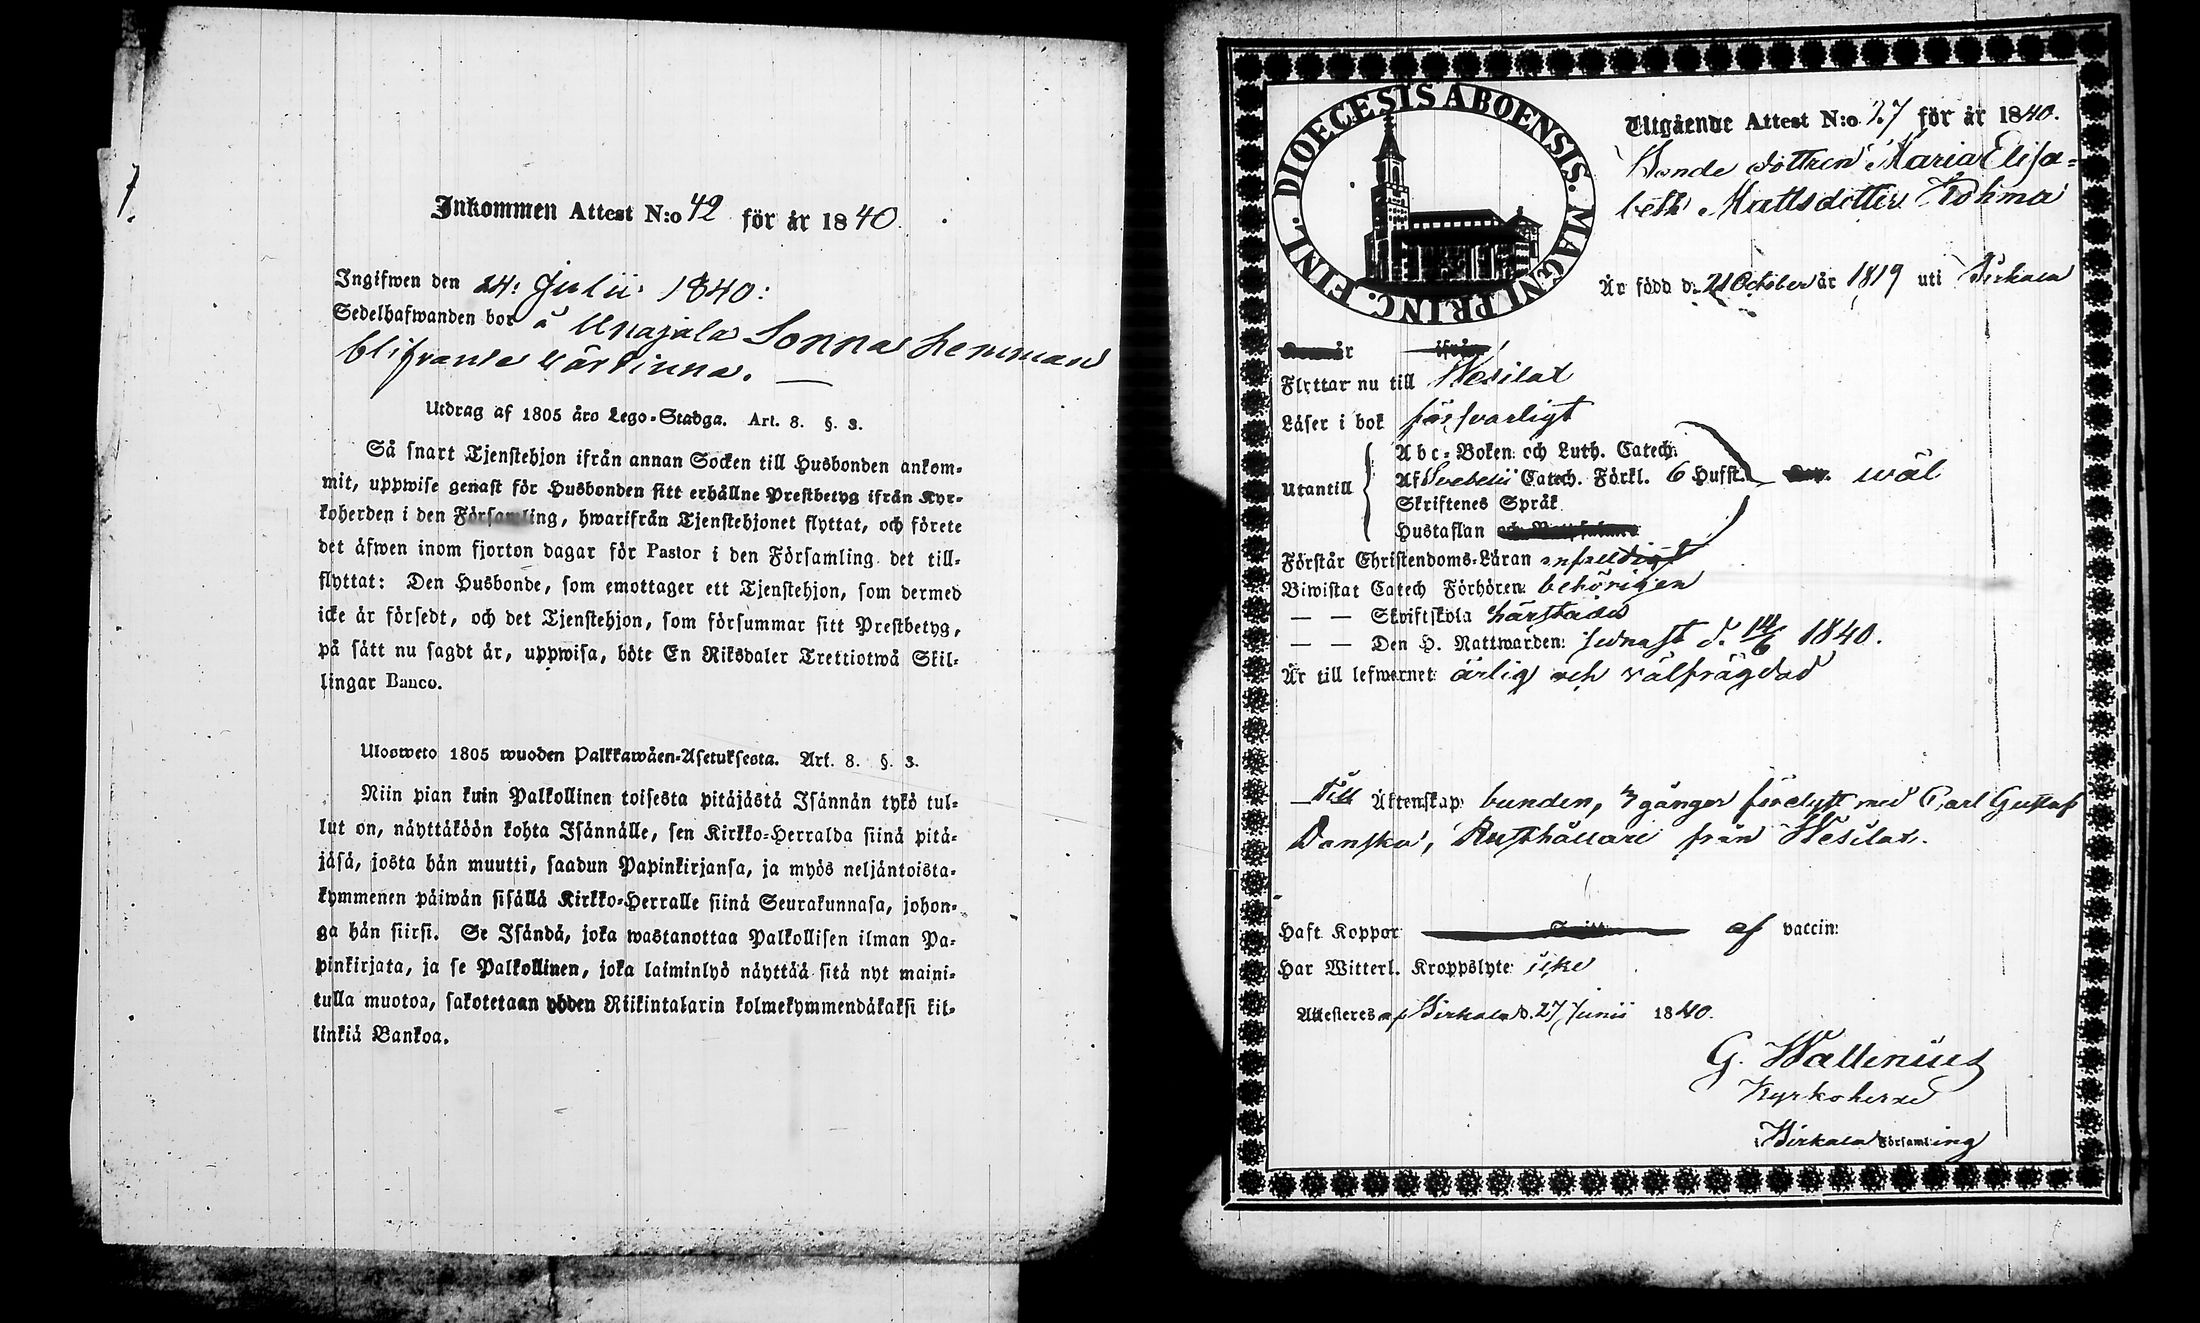 Inkommen Attest N:o 42 för år 1840.
Ingifwen den 24: Julii 1840:
Sedelhafwanden bor å Unajala Sonna hemman
blifvande värdinna. —
Utdrag af 1805 års Lego-Stadga. Art. 8. §. 3.
Så snart Tjenstehjon ifrån annan Socken till Husbonden ankom-
mit, uppwise genast för Husbonden sitt erhållne Prestbetyg ifrån Kyr-
koherden i den Församling, hwarifrån Tjenstehjonet flyttat, och förete
det äfwen inom fjorton dagar för Pastor i den Församling det till-
flyttat: Den Husbonde, som emottager ett Tjenstehjon, som dermed
icke är försedt, och det Tjenstehjon, som försummar sitt Prestbetyg,
på sätt nu sagdt är, uppwisa, böte En Riksdaler Trettiotwå Skil-
lingar Banco.
Ulosweto 1805 wuoden Palkkawäen-Asetuksesta. Art. 8. §. 3.
Niin pian kuin Palkollinen toisesta pitäjästä Isännän tykö tul-
lut on, näyttäköön kohta Isännälle, sen Kirkko-Herralda siinä pitä-
jäsä, josta hän muutti, saadun Papinkirjansa, ja myös neljäntoista-
kymmenen päiwän sisällä Kirkko-Herralle siinä Seurakunnasa, johon-
ga hän siirsi. Se Isändä, joka wastanottaa Palkollisen ilman Pa-
pinkirjata, ja se Palkollinen, joka laiminlyö näyttää sitä nyt maini-
tulla muotoa, sakotetaan yhden Riikintalarin kolmekymmendäkaksi kil-
linkiä Bankoa.
DIOECESIS ABOENSIS. MAGNI PRINC. FINL.
Utgående Attest N:o 27 för år 1840.
Bonde dottren Maria Elisa=
beth Mattsdotter
Är född d: 21 October år 1819 uti Birkala
Flyttar nu till Wesilax
Läser i bok försvarligt
Utantill
Abc-Boken och Luth. Catech.
Af Svebelii Catech. Förkl. 6 Hufst. wäl
Skriftenes Språk
Hustaflan
Förstår Christendoms-Läran enfaldigt
Biwistat Catech Förhören: behörigen
— — Skriftskola härstädes
— — Den H. Nattwarden: sednast d. 14/6 1840.
Är till lefwernet: ärlig och välfrägdad
Till Äktenskap: bunden, 3 gånger förelyst med Carl Gustaf
Danska, Rusthållare från Wesilax.
Haft Koppor af vaccin:
Har Witterl. Kroppslyte icke
Attesteras af Birkala d. 27 Junii 1840.
G. Wallenius
Kyrkoherde
i Birkala Församling